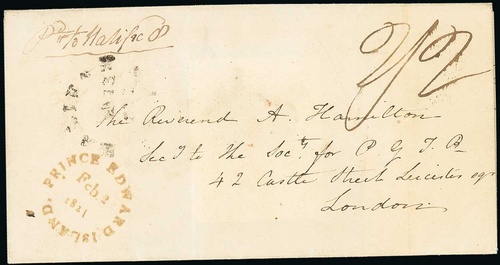 Pd to Halifax 8
2/2
The Reverend A. Hamilton
Secy to the Socy for P G F P
42 Castle Street Leicester sqr
London
PRINCE EDWARD ISLAND.
Feb 2
1841